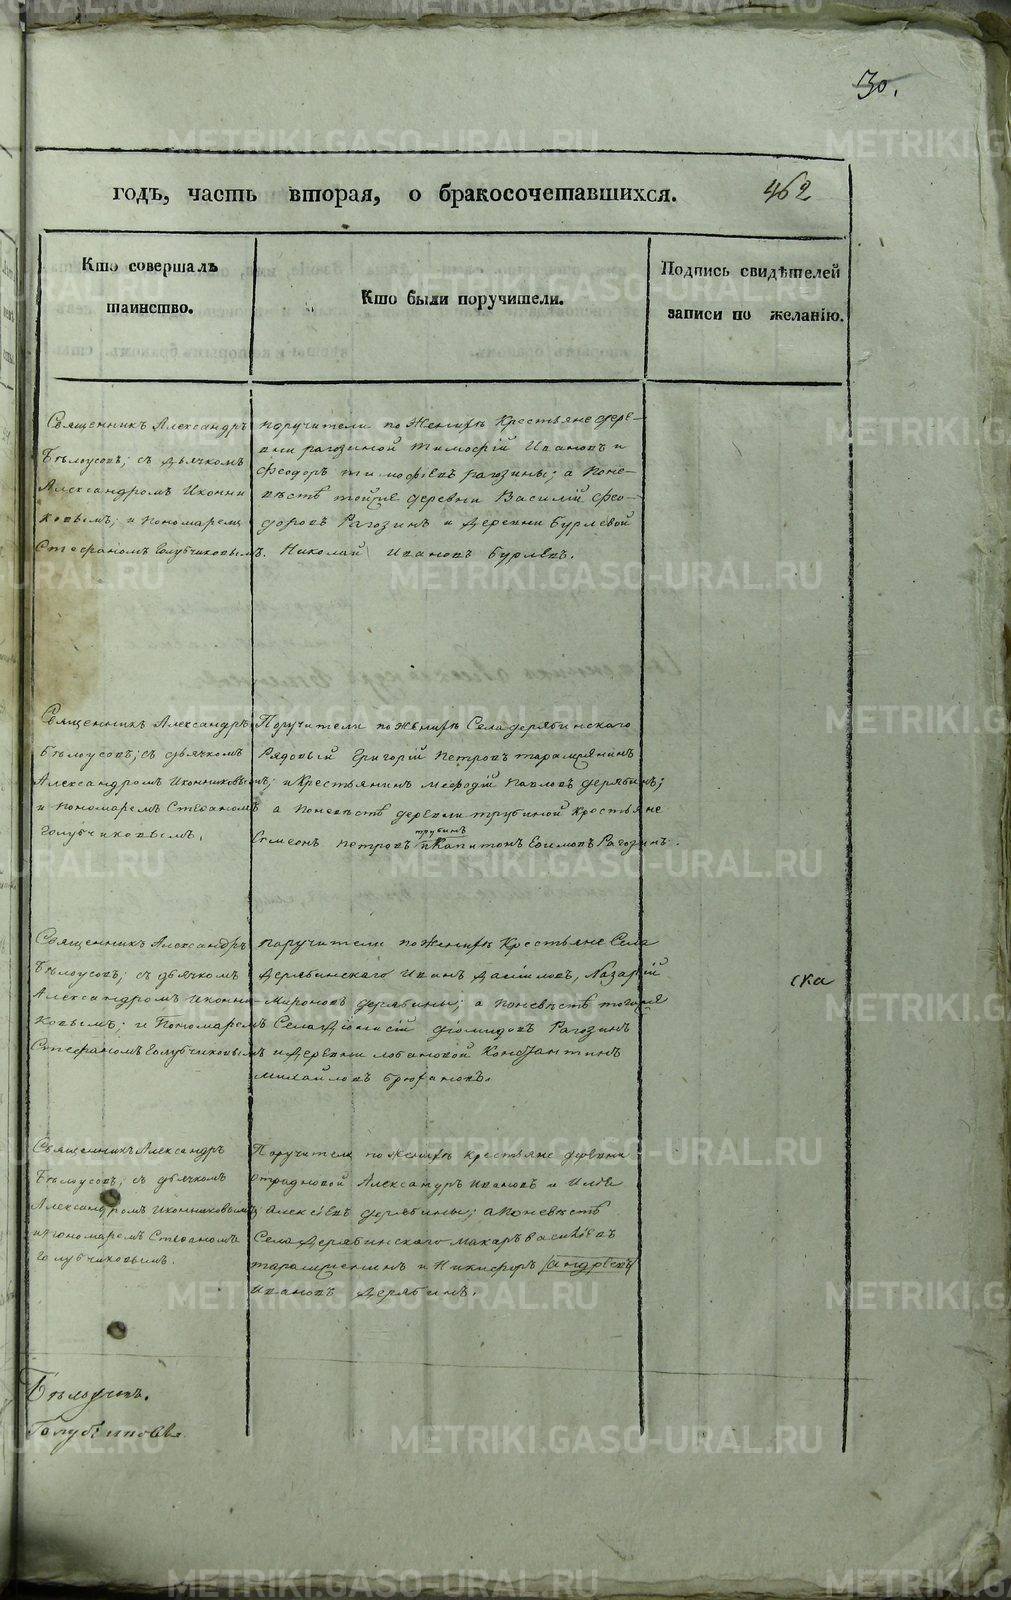 30.
годъ, часть вторая, о бракосочетавшихся. 462
Кто совершалъ
таинство.
Кто были поручители.
Подпись свидѣтелей
записи по желанію.
Священникъ Александръ
Бѣлоусовъ; съ дьячкомъ
Александромъ Иконни
ковымъ; и пономаремъ
Стефаномъ Голубчиковымъ.
поручители по Женихѣ Крестьяне дере-
вни рагозиной Тимофій Ивановъ и
Феодоръ тимофѣевъ рагозины; а поне-
вѣстѣ тойже деревни Василій Фео-
доровъ Рагозинъ и Деревни Бурлевой
Николай Ивановъ Бурлевъ.
Священникъ Александръ
Бѣлоусовъ; съ дьячкомъ
Александромъ Иконниковымъ;
и пономаремъ Стефаномъ
Голубчиковымъ.
Поручители по Женихѣ Села дерябинскаго
Рядовый Григорій Петровъ
и Крестьянинъ Меѳодій Павловъ дерябинъ;
а поневѣстѣ деревни трубиной Крестьяне
трубинъ
Симеонъ петровъ и Капитонъ Ефимовъ Рагозинъ.
Священникъ Александръ
Бѣлоусовъ; съ дьячкомъ
Александромъ Иконни-
ковымъ; и Пономаремъ
Стефаномъ Голубчиковымъ
поручители по Женихѣ Крестьяне Села
Дерябинскаго Иванъ Даніловъ, Назарій
Мироновъ дерябины; а поневѣстѣ тогоже
Села Діонисій Диомидовъ Рагозинъ
и Деревни лобановой Константинъ
Михайловъ Брюхановъ.
ска
Священникъ Александръ
Бѣлоусовъ; съ дьячкомъ
Александромъ Иконниковымъ
и пономаремъ Стефаномъ
Голубчиковымъ.
Поручители по Женихѣ крестьяне деревни
отрадновой Александръ Ивановъ и Илья
Алексѣевъ дерябины; а поневѣстѣ
Села Дерябинскаго Макаръ васильевъ
и Никифоръ /андреевъ/
Ивановъ Дерябинъ.
Бѣлоусовъ.
METRIKI.GASO-URAL.RU